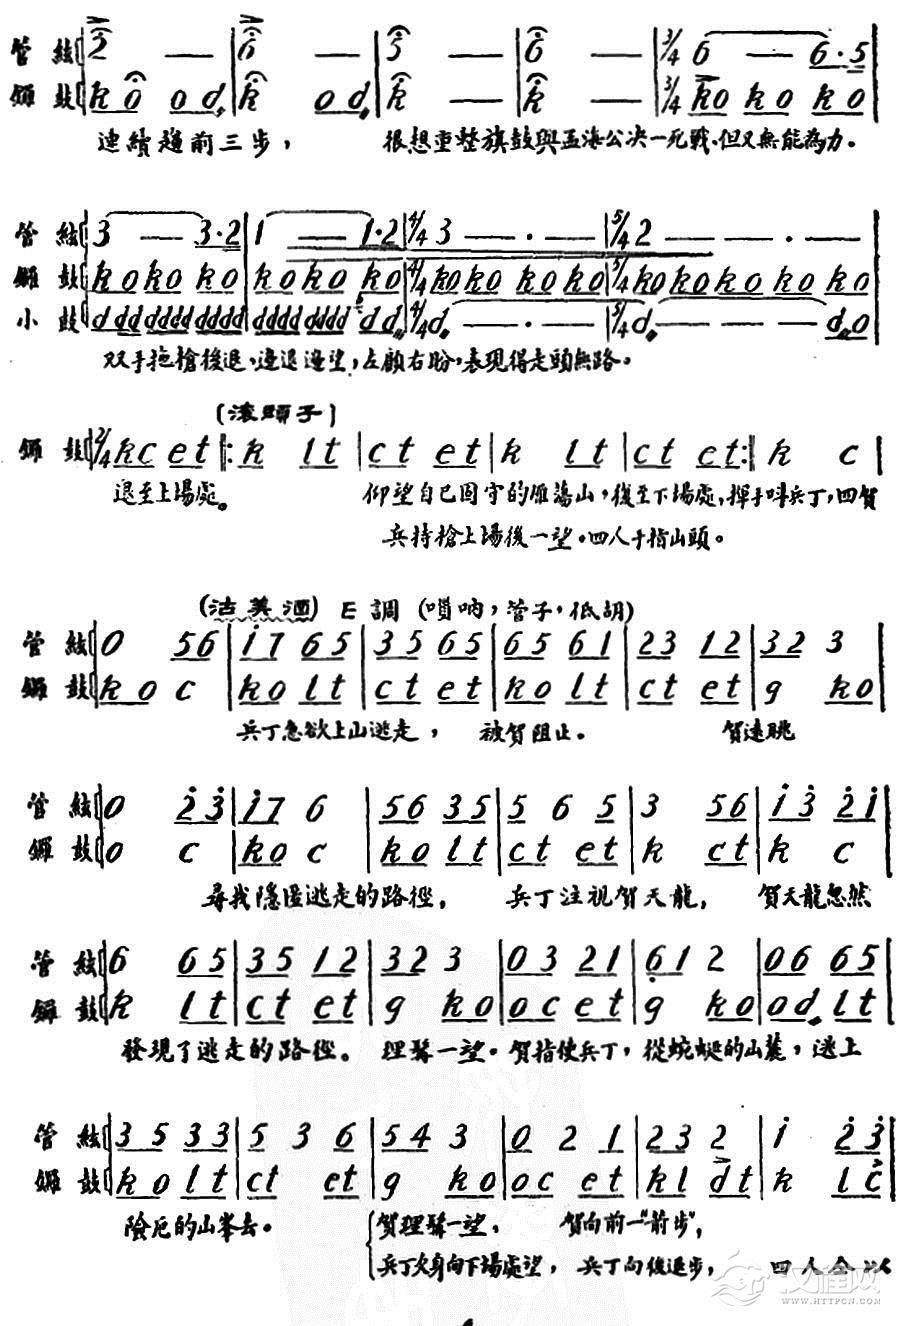 管絃 2 — | 6 — | 5 — | 6 — | 3/4 6 — 6·5
鑼鼓 k o o d. | k o d. | k — | k — | 3/4 ko ko ko
連續趨前三步，很想重整旗鼓與孟海公决一死戰、但又無能為力。
管絃 3 — 3·2 | 1 — 1·2 | 4/4 3 — · — | 5/4 2 — — · —
鑼鼓 ko ko ko | ko ko ko | 4/4 ko ko ko ko | 5/4 ko ko ko ko ko
小鼓 d dd dddd dddd | dddd dddd d d. | 4/4 d. — · — | 5/4 d. — — · d.o
双手拖槍後退、邊退邊望，左顧右盼，表現得走頭無路。
(滚頭子)
鑼鼓 2/4 kc et |: k lt | ct et | k lt | ct et :| k c |
退至上場處。仰望自己固守的雁蕩山，復至下場處，揮手叫兵丁，四賀
兵持槍上場後一望。四人手指山頭。
(沽美酒) E調 (嗩吶，管子，低胡)
管絃 0 56 | i7 65 | 35 65 | 65 61 | 23 12 | 32 3 |
鑼鼓 ko c | ko lt | ct et | ko lt | ct et | g ko |
兵丁急欲上山逃走，被賀阻止。賀遠眺
管絃 0 23 | i7 6 | 56 35 | 5 6 5 | 3 56 | i3 2i
鑼鼓 o c | ko c | ko lt | ct et | k ct | k c
尋找隱匿逃走的路徑，兵丁注視賀天龍，賀天龍忽然
管絃 6 65 | 35 12 | 32 3 | 03 21 | 61 2 | 06 65
鑼鼓 k lt | ct et | g ko | oc et | g ko | od. lt
發現了逃走的路徑。理髯一望。賀指使兵丁，從蜿蜒的山麓，逃上
管絃 35 33 | 5 3 6 | 54 3 | 0 2 1 | 23 2 | i 23
鑼鼓 ko lt | ct et | g ko | oc et | kl dt | k lc
險厄的山峯去。賀理髯一望、賀向前一"箭步"，
兵丁欠身向下場處望，兵丁向後退步，四人全以
WWW.HTTPCN.COM